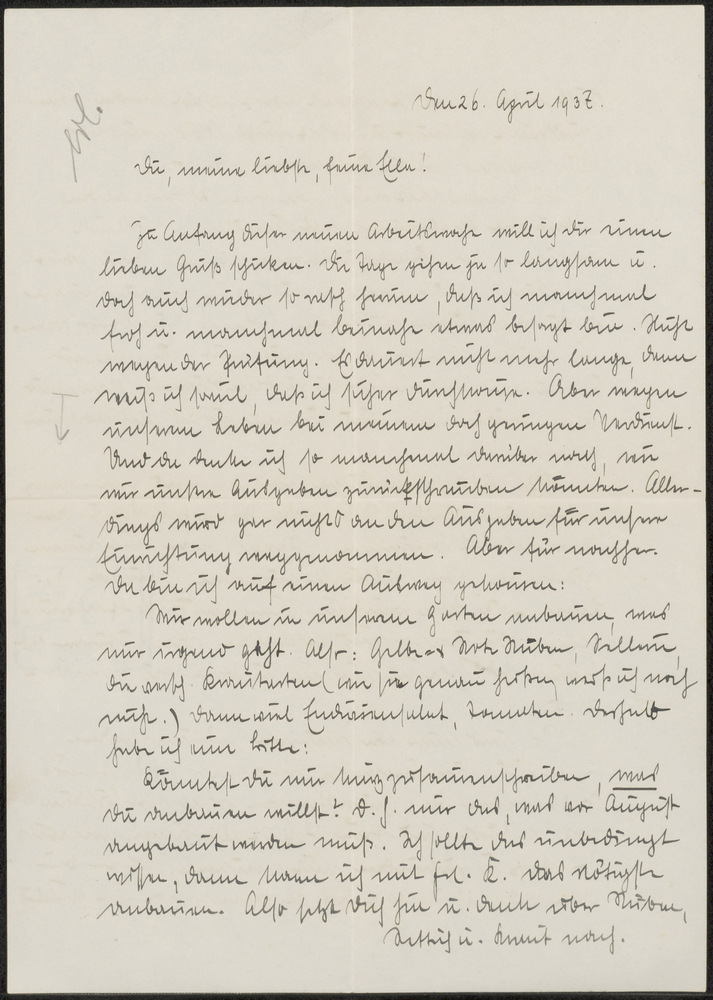 Den 26. April 1937.
Du, meine liebste, feine Elle!
Zu Anfang dieser neuen Arbeitswoche will ich Dir einen
lieben Gruß schicken. Die Tage gehen ja so langsam u.
doch auch wieder so rasch herum, daß ich manchmal
froh u. manchmal beinahe etwas besorgt bin. Nicht
wegen der Prüfung. Es dauert nicht mehr lange, dann
weiß ich, daß ich sicher durchkomme. Aber wegen
unserem Leben bei meinem doch geringen Verdienst.
Und da denke ich so manchmal darüber nach, wie
wir unsere Ausgaben zurückschrauben könnten. Aller-
dings wird gar nichts an den Ausgaben für unsere
Einrichtung weggenommen. Aber für nachher.
Da bin ich auf einen Ausweg gekommen:
Wir wollen in unserem Garten anbauen, was
nur irgend geht. Also: Gelbe- & Rote Rüben, Sellerie,
die versch. Krautarten (wie sie genau heißen, weiß ich noch
nicht.) Dann viel Endiviensalat, Tomaten. Deshalb
habe ich eine Bitte:
Könntest Du mir kurz zusammenschreiben, was
Du anbauen willst? D. h. nur das, was vor August
angebaut werden muß. Ich sollte das unbedingt
wissen, dann kann ich mit Frl. K. das Nötigste
anbauen. Also setz Dich hin u. denk über Rüben,
Rettich u. Kraut nach.